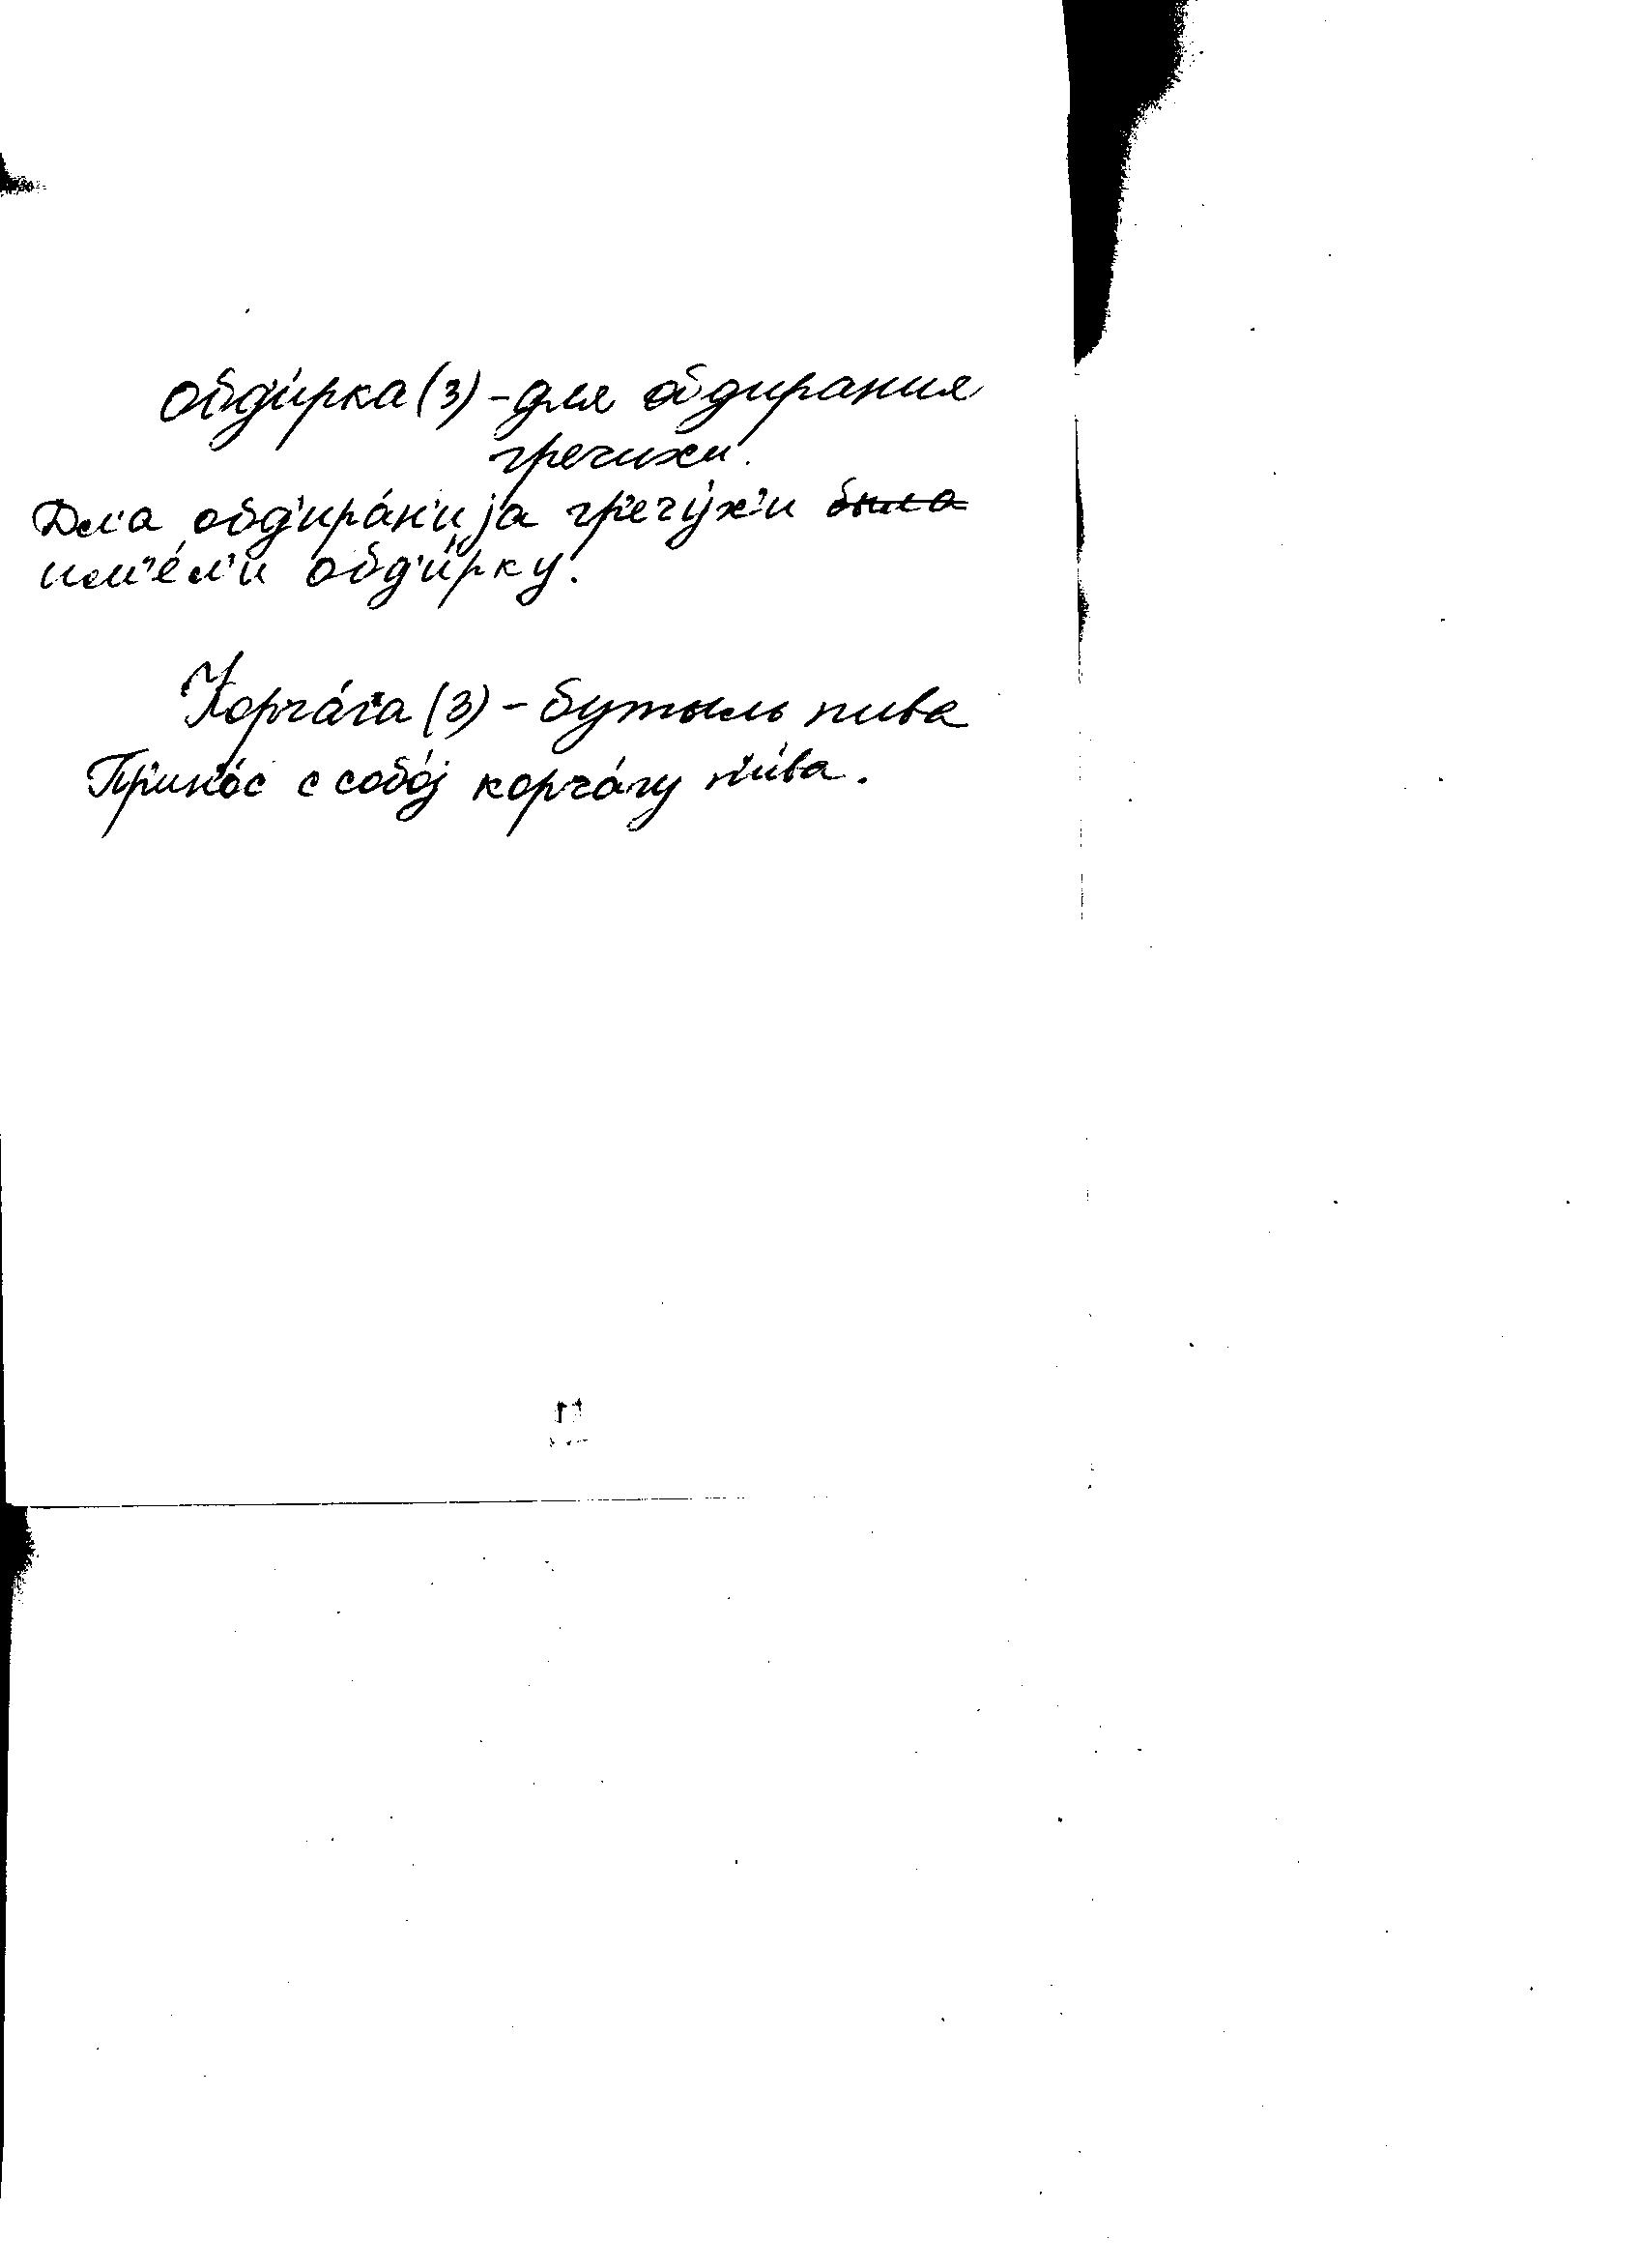 Обди́рка (3) - для обдирания
гречихи.
Дл'а обд'ира́н'иjа гр'ечу́х'и ~~была~~
им'е́л'и обд'и́рку.
Корча́га (3) - бутыль пива
Пр'ин'о́с с собо́j корча́гу п'и́ва.